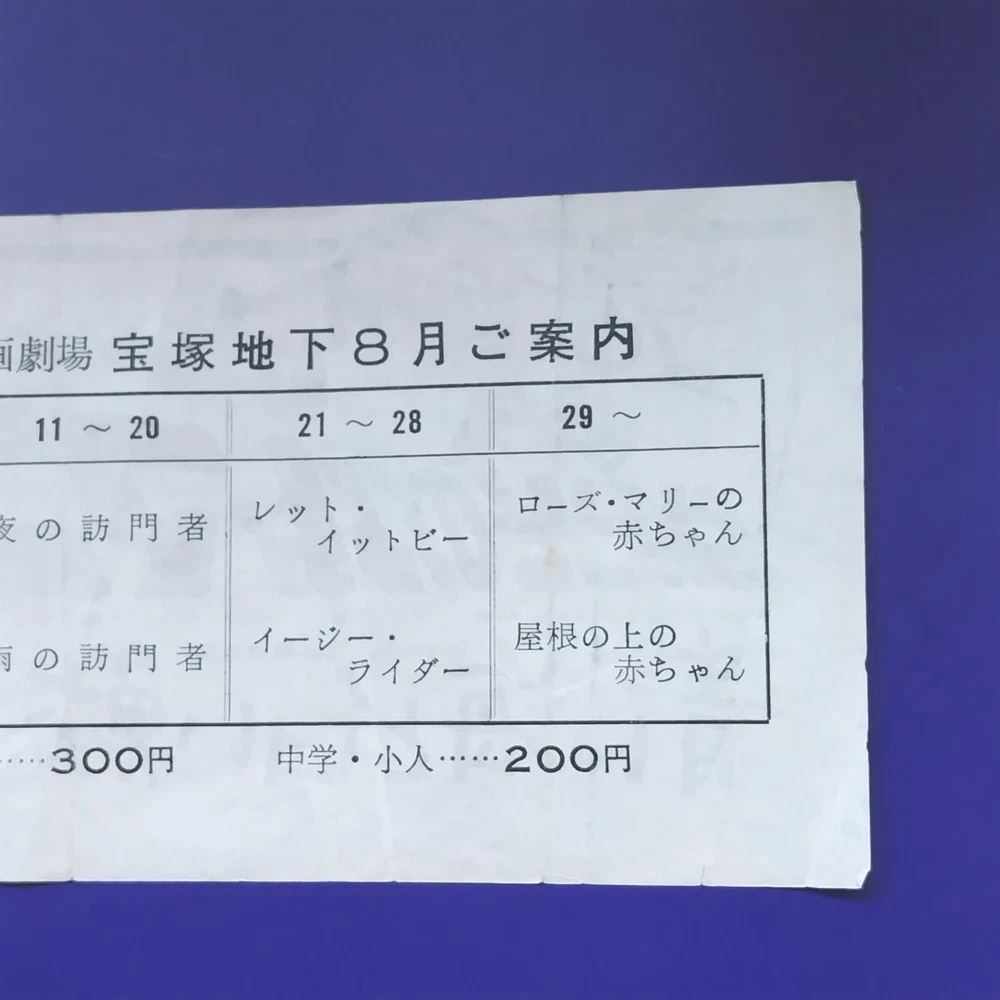 画劇場 宝塚地下8月ご案内
11 ～ 20
21 ～ 28
29 ～
夜の訪門者
レット・
イットビー
ローズ・マリーの
赤ちゃん
雨の訪門者
イージー・
ライダー
屋根の上の
赤ちゃん
……300円 中学・小人……200円